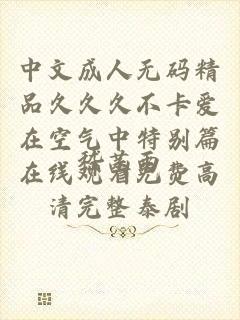 中文成人无码精
品久久久不卡爱
在空气中特别篇
在线观看免费高
清完整泰剧